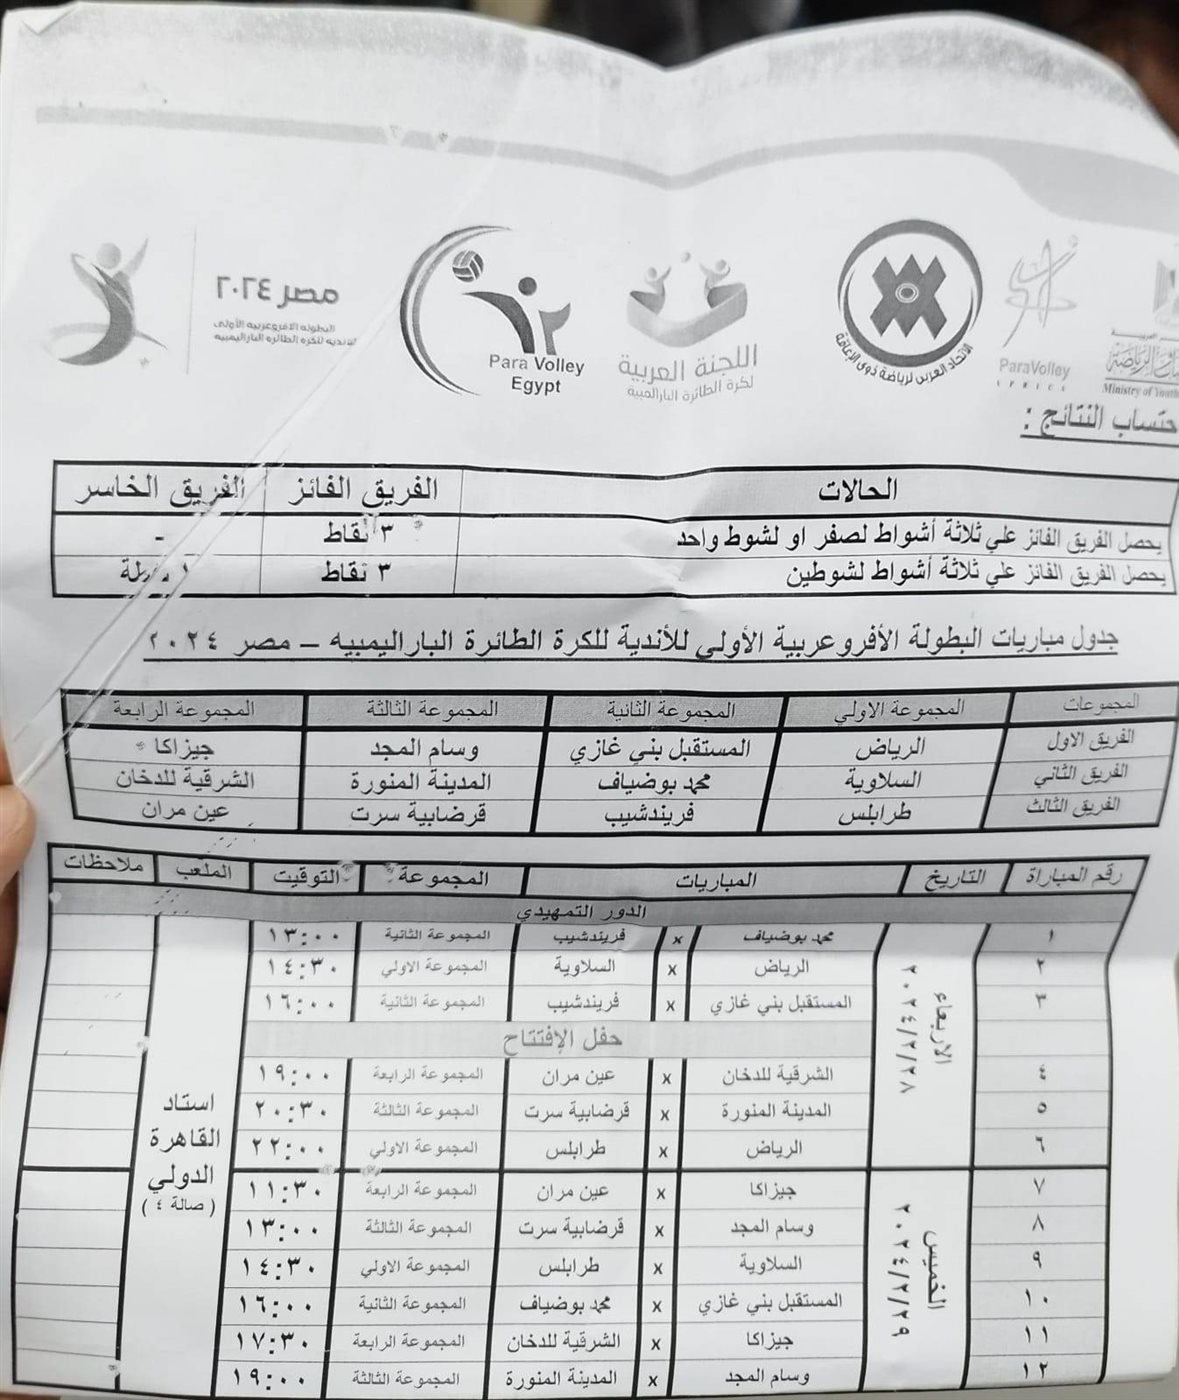 مصر ٢٠٢٤
البطولة الافروعربية الأولى
للأندية للكرة الطائرة البارالمبية
Para Volley
Egypt
اللجنة العربية
لكرة الطائرة البارالمبية
الاتحاد العربي لرياضة ذوي الإعاقة
ParaVolley
AFRICA
Ministry of Youth
حتساب النتائج :
الحالات | الفريق الفائز | الفريق الخاسر
يحصل الفريق الفائز علي ثلاثة أشواط لصفر او لشوط واحد | ٣ نقاط | -
يحصل الفريق الفائز علي ثلاثة أشواط لشوطين | ٣ نقاط
جدول مباريات البطولة الأفروعربية الأولي للأندية للكرة الطائرة الباراليمبيه – مصر ٢٠٢٤
المجموعات | المجموعة الاولي | المجموعة الثانية | المجموعة الثالثة | المجموعة الرابعة
الفريق الاول | الرياض | المستقبل بني غازي | وسام المجد | جيزاكا
الفريق الثاني | السلاوية | محمد بوضياف | المدينة المنورة | الشرقية للدخان
الفريق الثالث | طرابلس | فريندشيب | قرضابية سرت | عين مران
رقم المباراة | التاريخ | المباريات | المجموعة | التوقيت | الملعب | ملاحظات
الدور التمهيدي
١ | محمد بوضياف | x | فريندشيب | المجموعة الثانية | ١٣:٠٠
٢ | الرياض | x | السلاوية | المجموعة الاولي | ١٤:٣٠
٣ | المستقبل بني غازي | x | فريندشيب | المجموعة الثانية | ١٦:٠٠
الاربعاء
٢٠٢٤/٢/٢٨
حفل الإفتتاح
٤ | الشرقية للدخان | x | عين مران | المجموعة الرابعة | ١٩:٠٠
٥ | المدينة المنورة | x | قرضابية سرت | المجموعة الثالثة | ٢٠:٣٠
٦ | الرياض | x | طرابلس | المجموعة الاولي | ٢٢:٠٠
استاد
القاهرة
الدولي
( صالة ٤ )
٧ | جيزاكا | x | عين مران | المجموعة الرابعة | ١١:٣٠
٨ | وسام المجد | x | قرضابية سرت | المجموعة الثالثة | ١٣:٠٠
٩ | السلاوية | x | طرابلس | المجموعة الاولي | ١٤:٣٠
الخميس
٢٠٢٤/٢/٢٩
١٠ | المستقبل بني غازي | x | محمد بوضياف | المجموعة الثانية | ١٦:٠٠
١١ | جيزاكا | x | الشرقية للدخان | المجموعة الرابعة | ١٧:٣٠
١٢ | وسام المجد | x | المدينة المنورة | المجموعة الثالثة | ١٩:٠٠